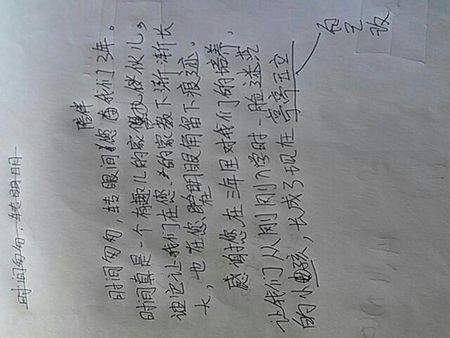 时间匆匆，转眼间
时间匆匆，转眼间您陪伴着我们3年。
时间真是一个有趣儿的家伙儿，
让我们在您的家教下渐渐长
大，也在您的眼角留下痕迹。
感谢您在三年里对我们的培养，
让我们从刚刚入学时一脸迷茫
的小女孩，长成了现在亭亭玉立
改